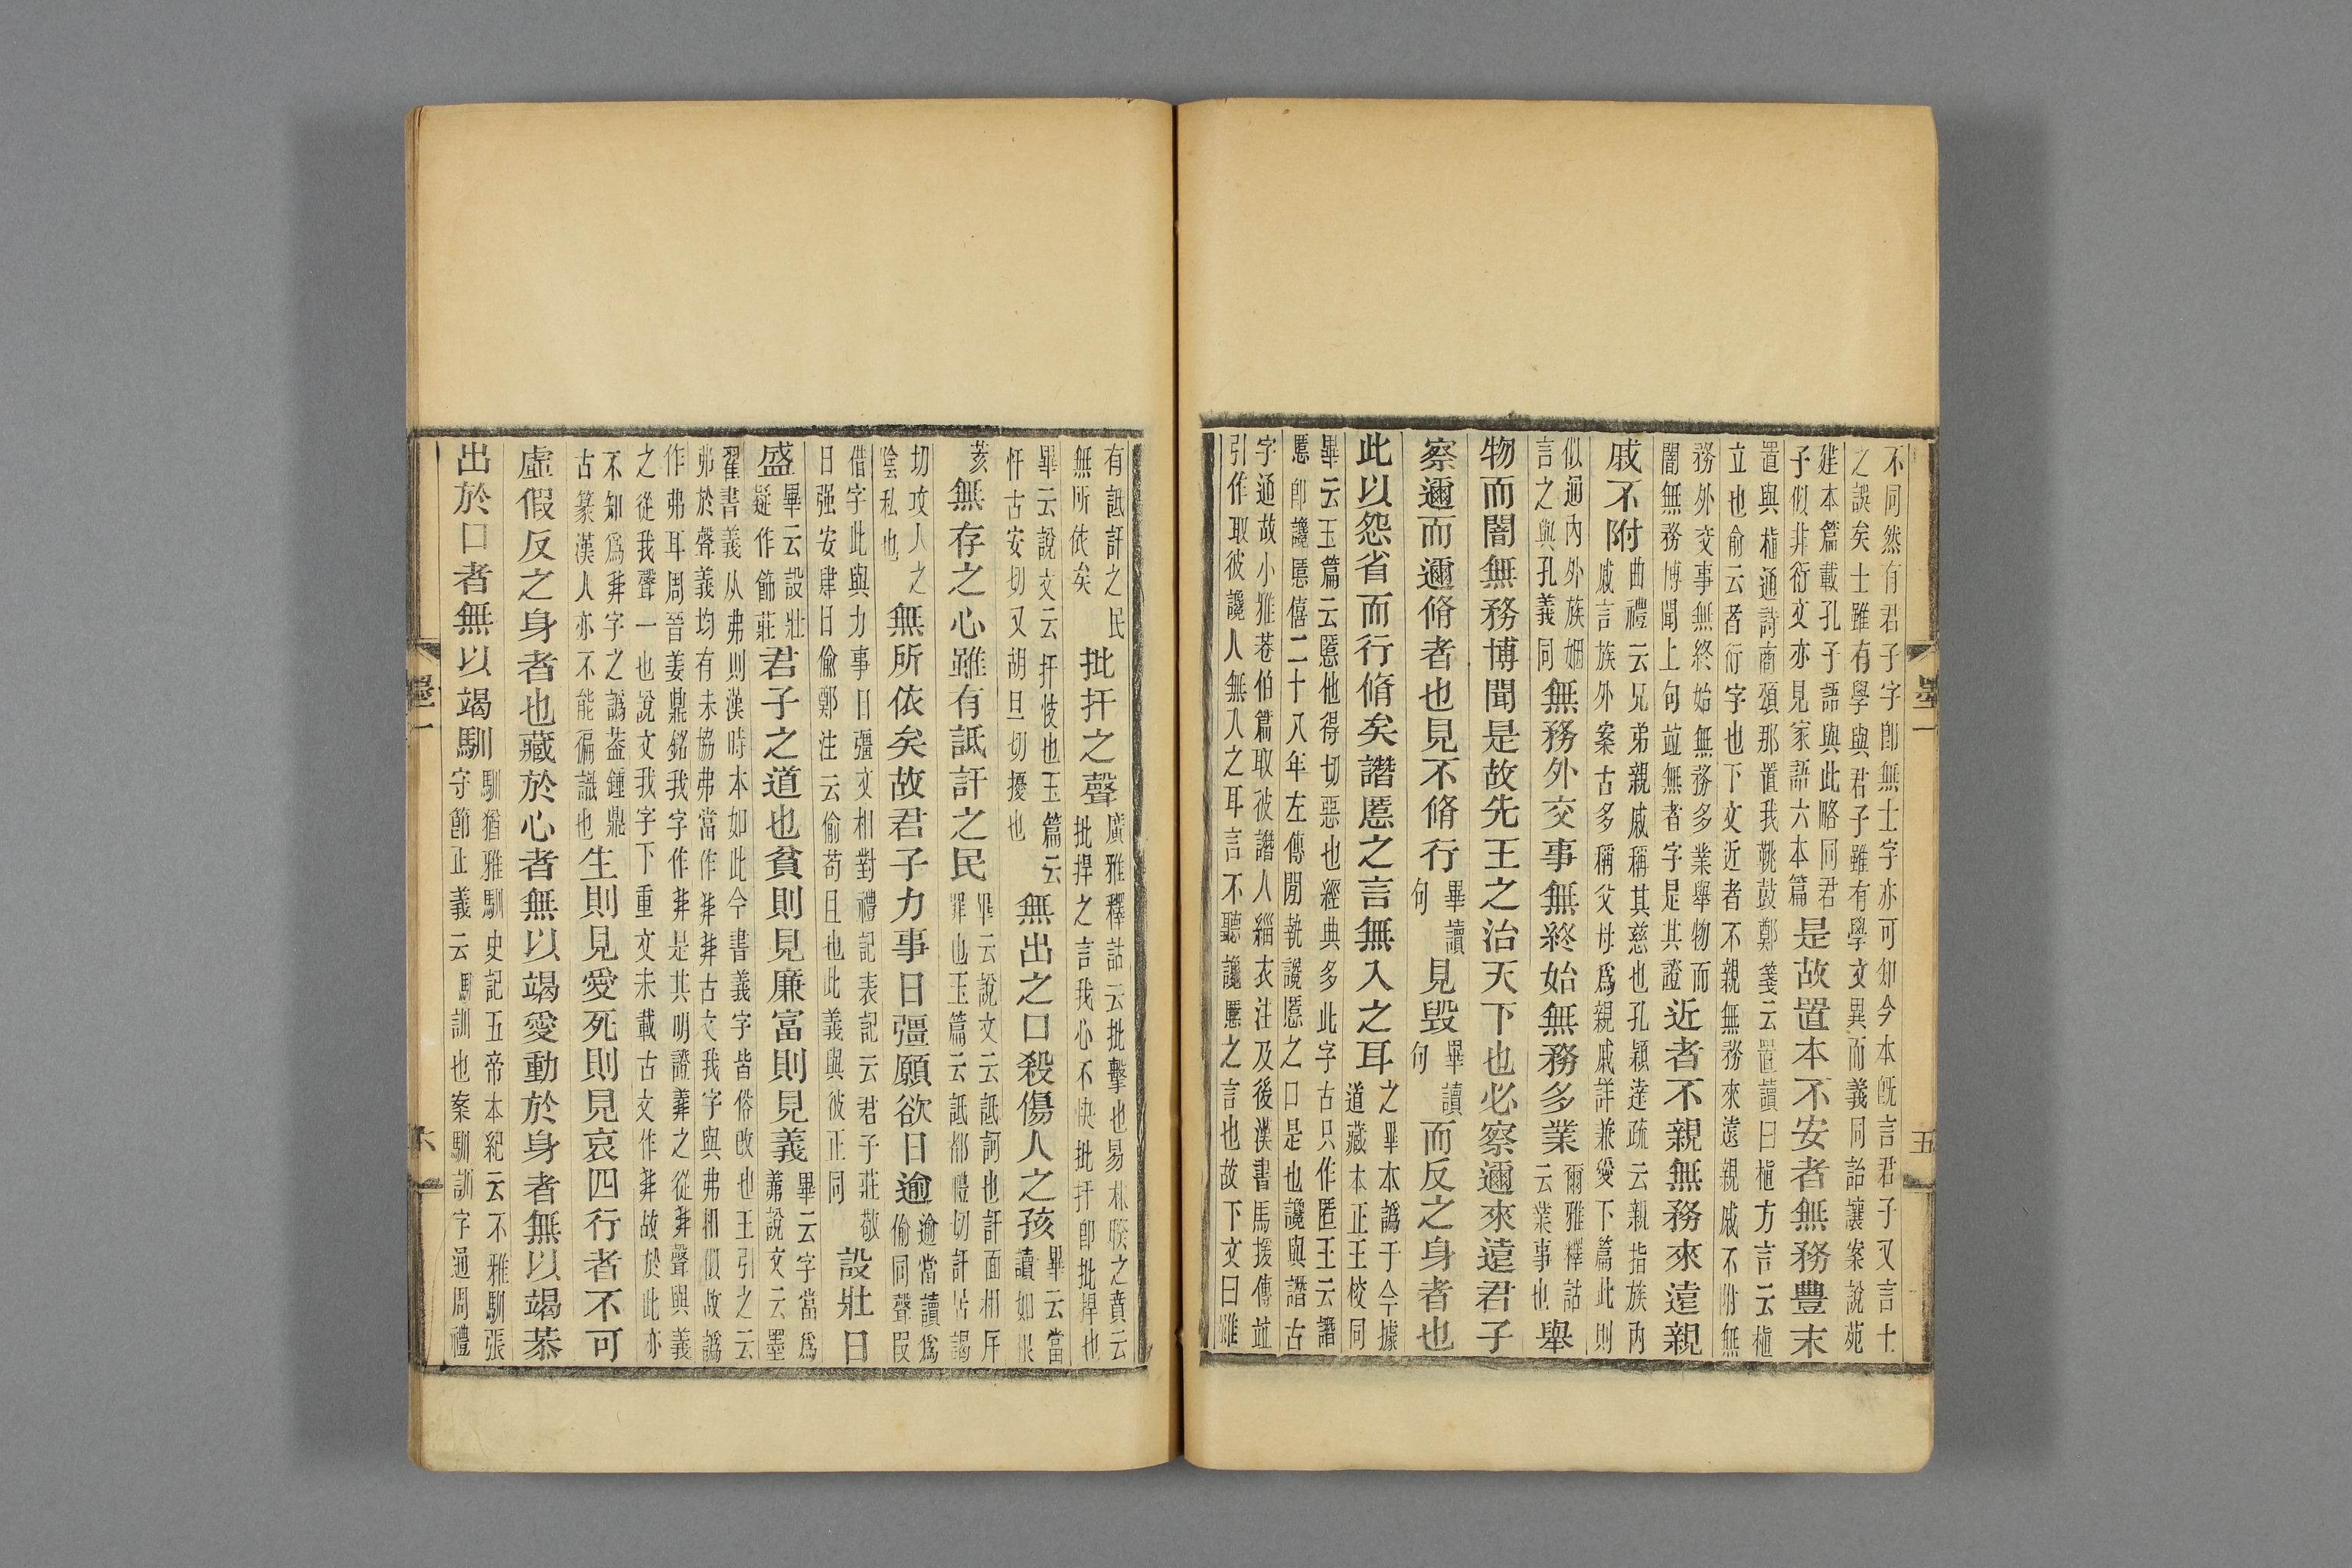 墨一
五
不同然有君子字卽無士字亦可知今本旣言君子又言士
之誤矣士雖有學與君子雖有學文異而義同詒讓案說苑
建本篇載孔子語與此略同君
子似非衍文亦見家語六本篇
是故置本不安者無務豐末
置與植通詩商頌那置我鞉鼓鄭箋云置讀曰植方言云植
立也俞云者衍字也下文近者不親無務來遠親戚不附無
務外交事無終始無務多業舉物而
闇無務博聞上句竝無者字是其證
近者不親無務來遠親
戚不附
曲禮云兄弟親戚稱其慈也孔穎達疏云親指族內
戚言族外案古多稱父母爲親戚詳兼愛下篇此則
似通內外族姻
言之與孔義同
無務外交事無終始無務多業
爾雅釋詁
云業事也
舉
物而闇無務博聞是故先王之治天下也必察邇來遠君子
察邇而邇脩者也見不脩行
畢讀
句
見毀
畢讀
句
而反之身者也
此以怨省而行脩矣譖慝之言無入之耳
之畢本譌于今據
道藏本正王校同
畢云玉篇云慝他得切惡也經典多此字古只作匿王云譖
慝卽讒慝僖二十八年左傳閒執讒慝之口是也讒與譖古
字通故小雅巷伯篇取彼譖人緇衣注及後漢書馬援傳竝
引作取彼讒人無入之耳言不聽讒慝之言也故下文曰雖
有詆訐之民
無所依矣
批扞之聲
廣雅釋詁云批擊也易林睽之賁云
批捍之言我心不快批扞卽批捍也
畢云說文云扞忮也玉篇云
忓古安切又胡旦切擾也
無出之口殺傷人之孩
畢云當
讀如根
荄
無存之心雖有詆訐之民
畢云說文云詆訶也訐面相斥
罪也玉篇云詆都禮切訐居謁
切攻人之
陰私也
無所依矣故君子力事日彊願欲日逾
逾當讀爲
偷同聲叚
借字此與力事日彊文相對禮記表記云君子莊敬
日强安肆日偷鄭注云偷苟且也此義與彼正同
設壯日
盛
畢云設壯
疑作飾莊
君子之道也貧則見廉富則見義
畢云字當爲
羛說文云墨
翟書義从弗則漢時本如此今書義字皆俗改也王引之云
弗於聲義均有未協弗當作古文我字與弗相似故譌
作弗耳周晉姜鼎銘我字作是其明證之從聲與義
之從我聲一也說文我字下重文未載古文作故於此亦
不知爲字之譌葢鍾鼎
古篆漢人亦不能徧識也
生則見愛死則見哀四行者不可
虛假反之身者也藏於心者無以竭愛動於身者無以竭恭
出於口者無以竭馴
馴猶雅馴史記五帝本紀云不雅馴張
守節正義云馴訓也案馴訓字通周禮
墨一
六